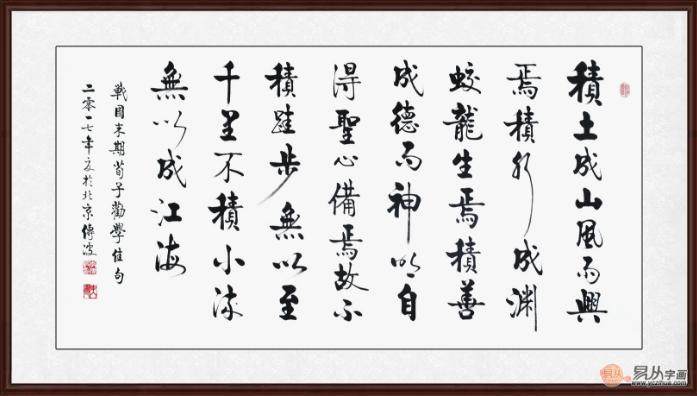 積土成山風雨興
焉積水成渊
蛟龍生焉積善
成德而神明自
得聖心備焉故不
積跬步無以至
千里不積小流
無以成江海
戰国末期荀子勸學佳句
二零一七年夏於北京傳波
易从字画
www.yczihua.com